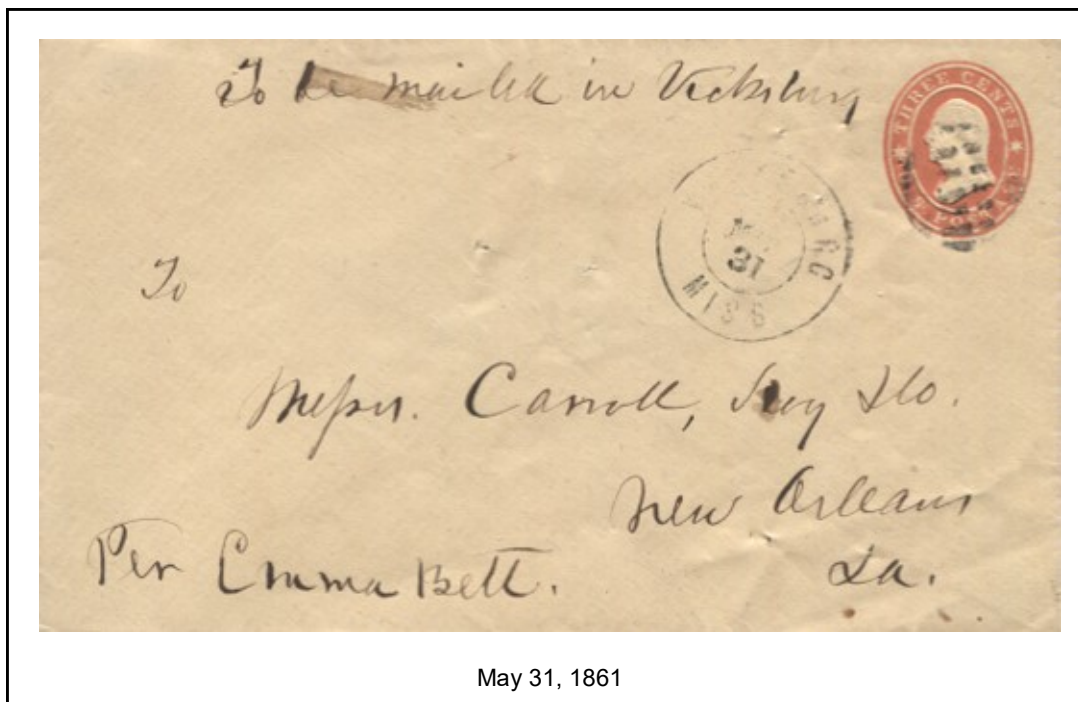 To be mailed in Vicksburg
THREE CENTS
U.S. POSTAGE
MAY
31
MISS
To
Messrs. Carroll, Hoy & Co.
New Orleans
La.
Per Emma Bett.
May 31, 1861